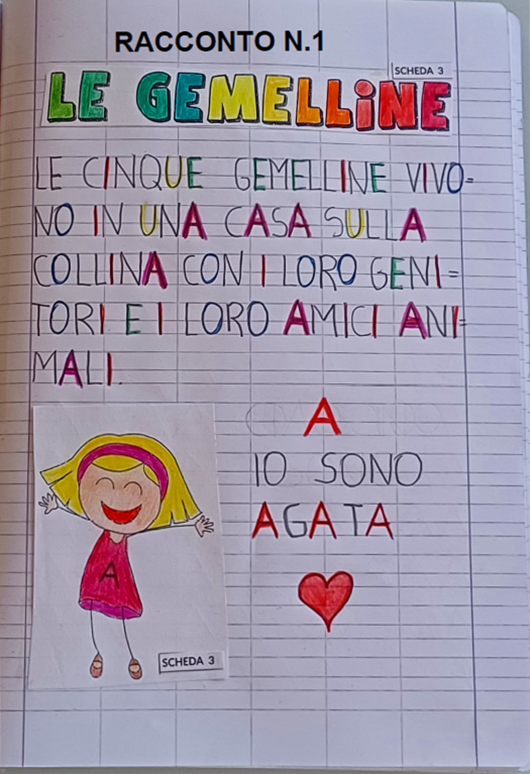 RACCONTO N.1
SCHEDA 3
LE GEMELLiNE
LE CINQUE GEMELLINE VIVO=
NO IN UNA CASA SULLA
COLLINA CON I LORO GENI=
TORI E I LORO AMICI ANI=
MALI.
A
IO SONO
AGATA
A
SCHEDA 3